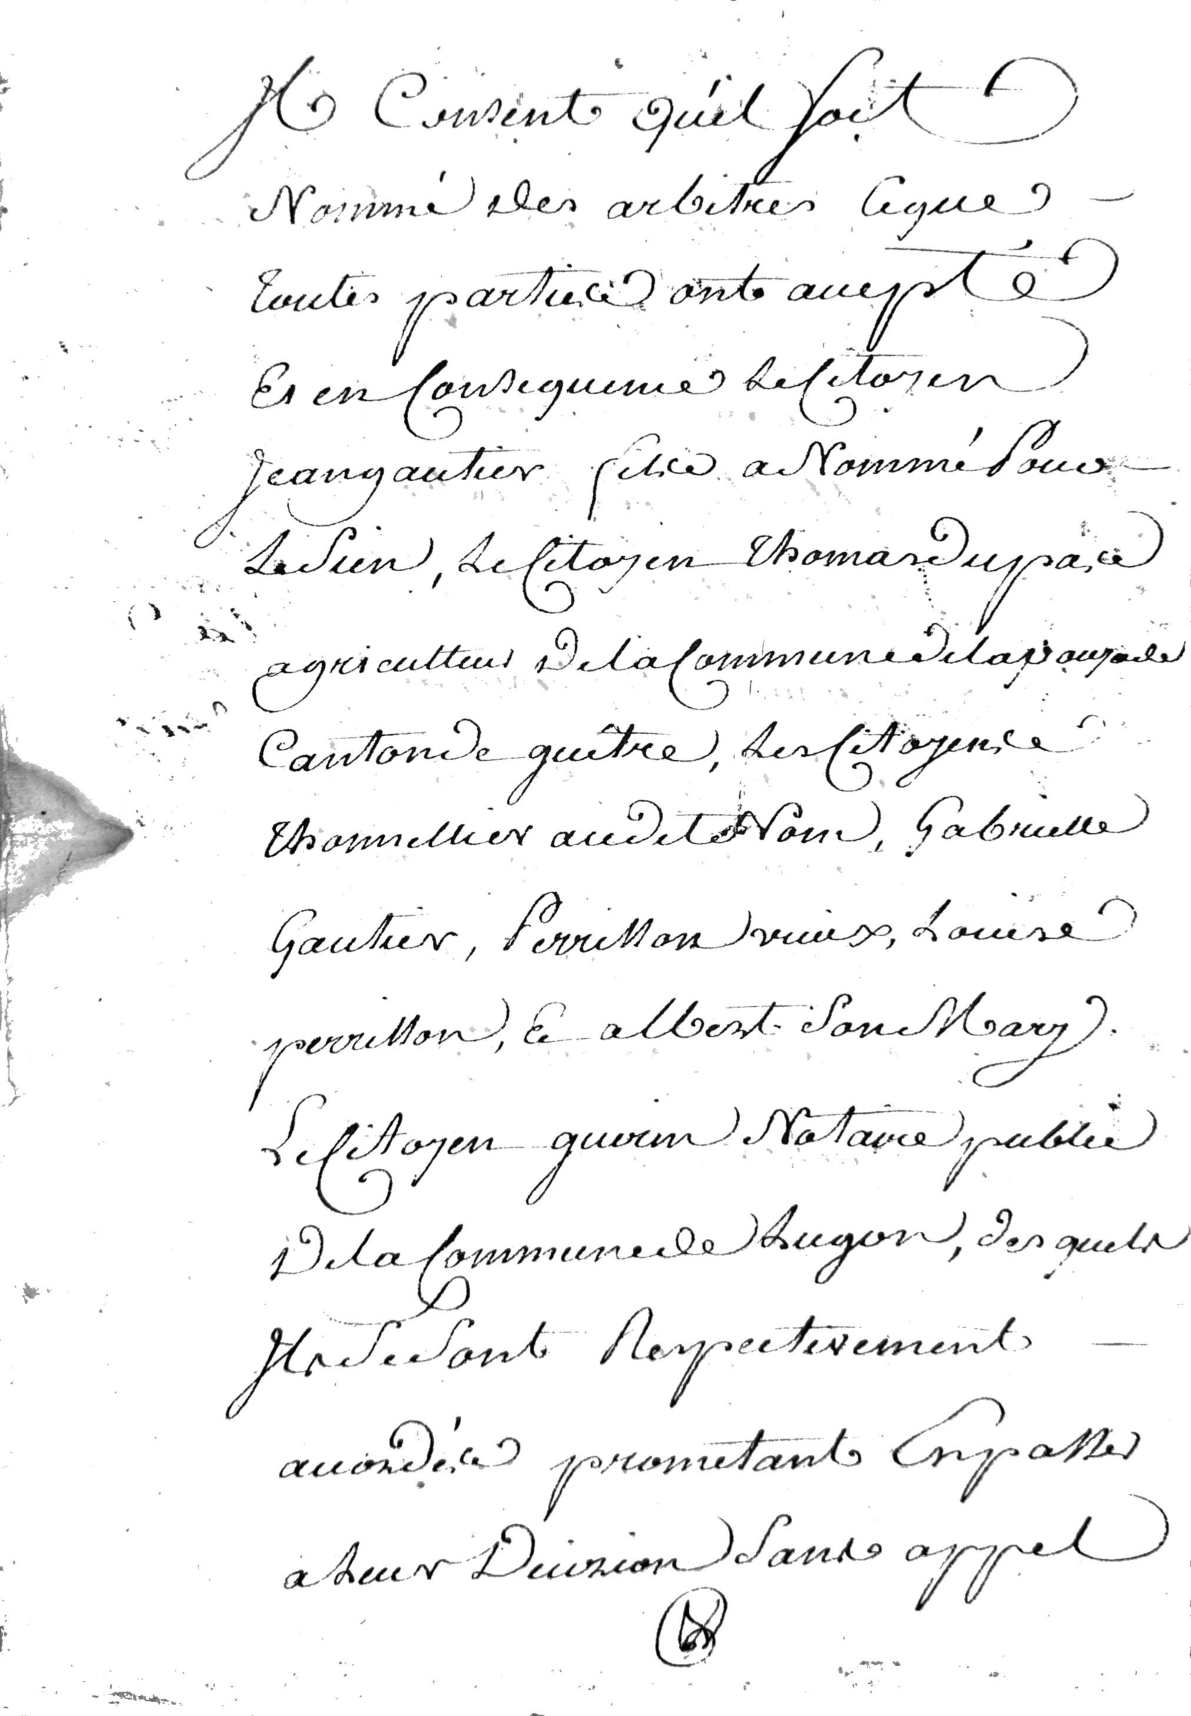 Il Consent qu'il soit
Nommé des arbitres Ceque
toutes parties ont accepté
Et en Consequence Le Citoyen
Jean gautier fils a Nommé Pour
Le Sien, Le Citoyen Thomas Dupas
agriculteur De la Commune de la pouyade
Canton de guitre, Les Citoyens
Thonnellier audit Nom, Gabrielle
Gautier, Perrillon vieux, Louise
perrillon, & albert Son Mary.
Le Citoyen guerin Notaire public
De la Commune de Lugon, desquels
Ils Se Sont Respectivement
accordés prometant En passer
a Leur Decision Sans appel